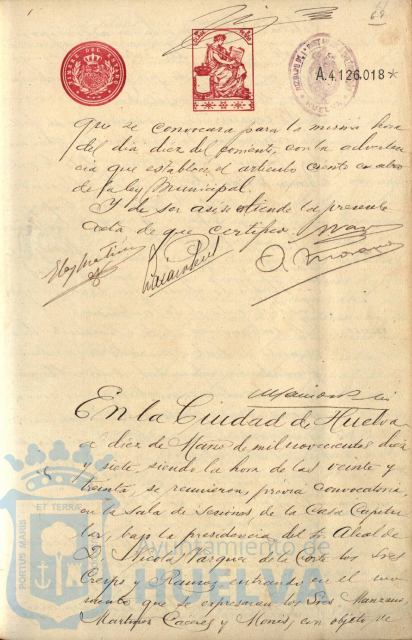 TIMBRE DEL ESTADO
A.4.126.018*
HUELVA
que se convocara para la misma hora
del dia diez del corriente, con la adverten
cia que establece el articulo ciento cuatro
de la ley Municipal.
Y de ser asi se estiende la presente
acta de que certifico
O. Moreno
En la Ciudad de Huelva
a diez de Marzo de mil novecientos diez
y siete, siendo la hora de las veinte y
treinta, se reunieron, previa convocatoria,
en la Sala de Sesiones de la Casa Capitu
lar, bajo la presidencia del Sr Alcalde
D. Nicolás Vázquez de la Corte los Sres
Crespo y Ramos entrando en el mo
mento que se expresaran los Sres Manzano
Martinez Caceres y Mones, con objeto de
ET TERRÆ
PORTUS MARIS
Ayuntamiento de
HUELVA